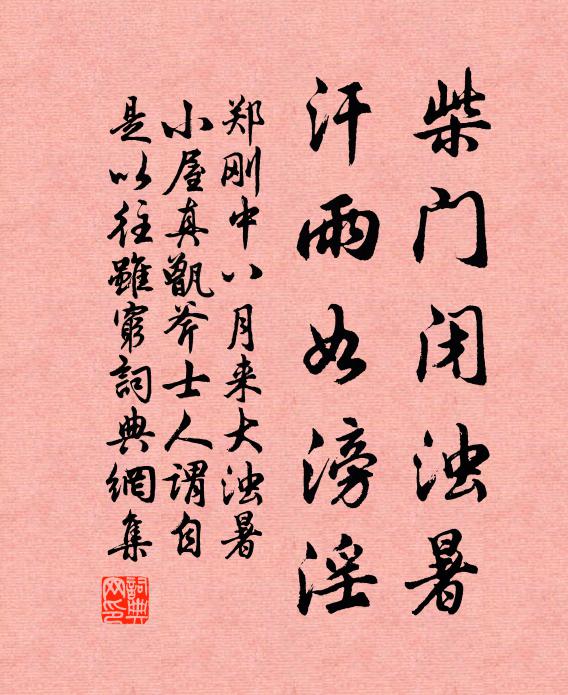 柴门闭浊暑
汗雨如滂淫
郑刚中八月来大浊暑
小屋真甑斧士人谓自
是以往虽窮詞典網集
詞典
网印